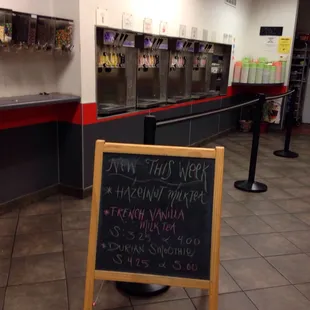 New This Week
* Hazelnut Milk Tea
* French Vanilla
Milk Tea
$3.25 or 4.00
* Durian Smoothie
$4.25 or 5.00